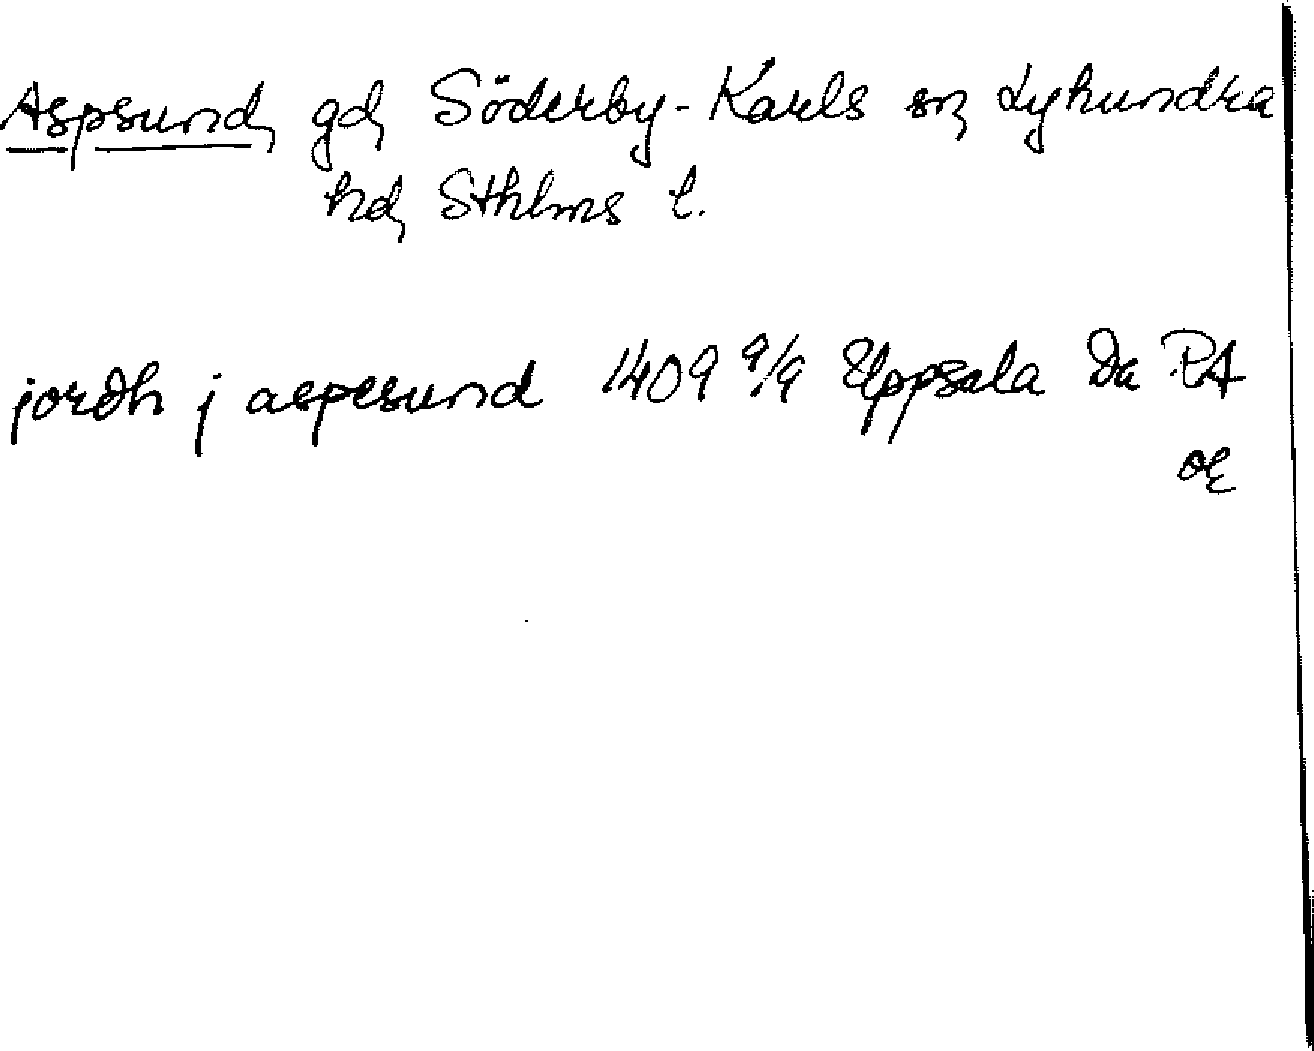 Aspsund, gd, Söderby-Karls sn, Lyhundra
hd, Sthlms l.
jordh j aspesund 1409 9/9 Uppsala Da RA
or